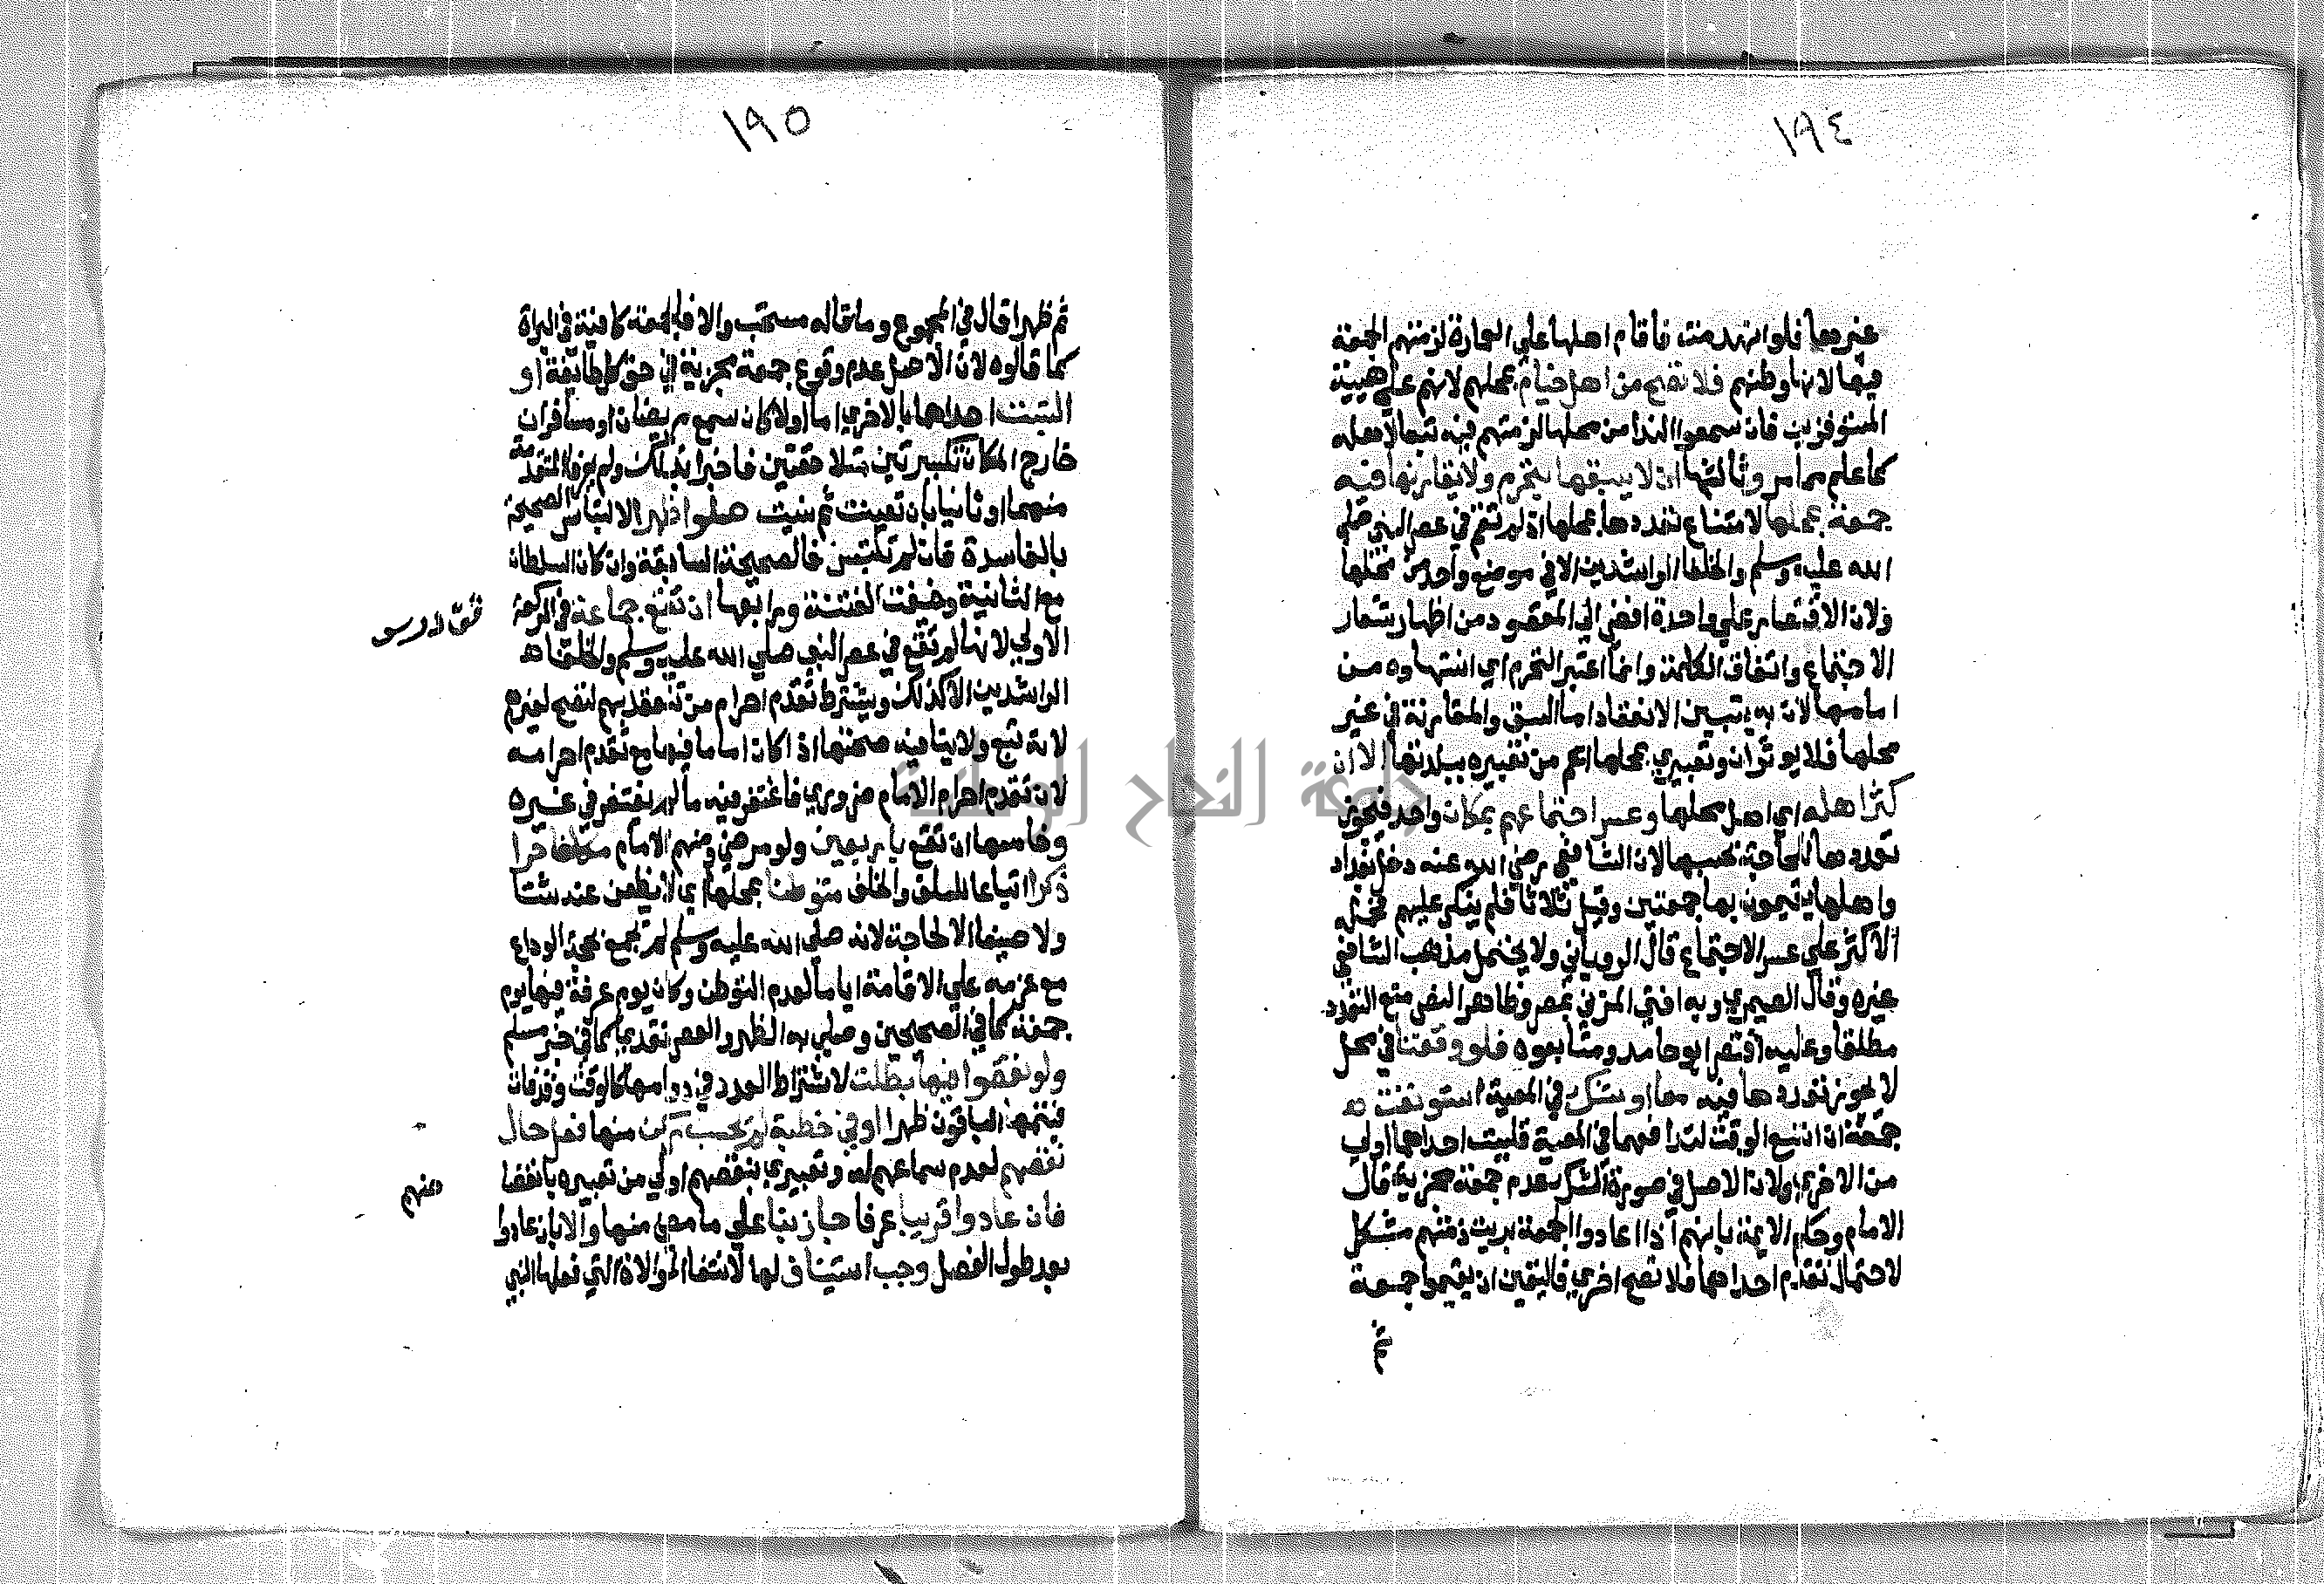 ١٩٤
غيرها فلو انهدمت فأقام اهلها علي العمارة لزمتهم الجمعة
فيها لانها وطنهم فلا تصح من اهل خيام بمحلهم لانهم علي هيئة
المستوفزين فان سمعوا الندأ من محلها لزمتهم فيه تبعا لاهله
كما علم مما مر وثالثها ان لا يسبقها بتحرم ولا يقارنها فيه
جمعة بمحلها لامتناع تعددها بمحلها اذ لم تقم في عصر النبي صلي
الله عليه وسلم والخلفا الراشدين الا في موضع واحد من محلها
ولان الاقتصار علي واحدة افضي الي المقصود من اظهار شعار
الاجتماع واتفاق الكلمة وانما اعتبر التحرم اي انتهاوه مـن
امامها لان به يتبين الانعقاد اما السبق والمقارنة في غير
محلها فلا يوثران وتعبيري بمحلها اعم من تعبيره ببلدتها الا ان
كثر اهله اي اهل محلها وعسر اجتماعهم بمكان واحد فيجوز
تعددها للحاجة بحسبها لان الشافعي رضي الله عنه دخل بغداد
واهلها يقيمون بها جمعتين وقيل ثلاثا فلم ينكر عليهم فحمله
الاكثر علي عسر الاجتماع قال الروياني ولا يحتمل مذهب الشافعي
غيره وقال الصيمري وبه افتي المزني بمصر وظاهر النص منع التعدد
مطلقا وعليه اقتصر ابو حامد ومتابعوه فلو وقعتا في محل
لا يجوز تعددها فيه معا او شك في المعية استونفت
جمعة ان اتسع الوقت لتدافعهما في المعية فليست احداهما اولي
من الاخري ولان الاصل في صورة الشك عدم جمعة مجزية قال
الامام وحكم الايمة بانهم اذا اعادوا الجمعة بريت ذمتهم مشكل
لاحتمال تقدم احداهما فلا تصح اخري فاليقين ان يقيموا جمعة
ثم
١٩٥
ثم ظهرا قال في المجموع وما قاله مستحب والا فالجمعة كافية في البراة
كما قالوه لان الاصل عدم وقوع جمعة مجزية في حق كل طايفة او
التبست احداهما بالاخري اما اولا كان سمع مريضان او مسافران
خارج المكان تكبيرتين متلاحقتين فاخبرا بذلك ولم يعرفا المتقدمة
منهما او ثانيا بان تعينت ثم نسيت صلوا ظهرا لالتباس الصحيحة
بالفاسدة فان لم تلتبس فالصحيحة السابقة وان كان السلطان
مع الثانية وخيفت الفتنة ورابعها ان تقع جماعة في الركعة
الاولي لانها لم تقع في عصر النبي صلي الله عليه وسلم والخلفا
الراشدين الا كذلك ويشترط تقدم احرام من تنعقد بهم لتصح لغيرهم
لانه تبع ولا ينافيه صحتها اذا كان اماما فيها مع تقدم احرامه
لان تقدم احرام الامام ضروري فاغتفر فيه ما لم يغتفر في غيره
وخامسها ان تقع باربعين ولو مرضي ومنهم الامام مكلفا حرا
ذكرا اتباعا للسلف والخلف متوطنا بمحلها اي لا يظعن عنه شتا
ولا صيفا الا لحاجة لانه صلي الله عليه وسلم لم يجمع بحجة الوداع
مع عزمه علي الاقامة اياما لعدم التوطن وكان يوم عرفة فيها يوم
جمعة كما في الصحيحين وصلي به الظهر والعصر تقديما كما في خبر مسلم
ولو نقصوا فيها بطلت لاشتراط العدد في دوامها كالوقت وقد فات
فيتمها الباقون ظهرا او في خطبة لم يحسب ركن منها فعل حال
نقصهم لعدم سماعهم له وتعبيري بنقصهم اولي من تعبيره بانفضا
منهم
فان عادوا قريبا عرفا جاز بنا علي ما مضي منها والا بان عادوا
بعد طول الفصل وجب استيناف لها لانتفا الموالاة التي فعلها النبي
جامعة النجاح الوطنية